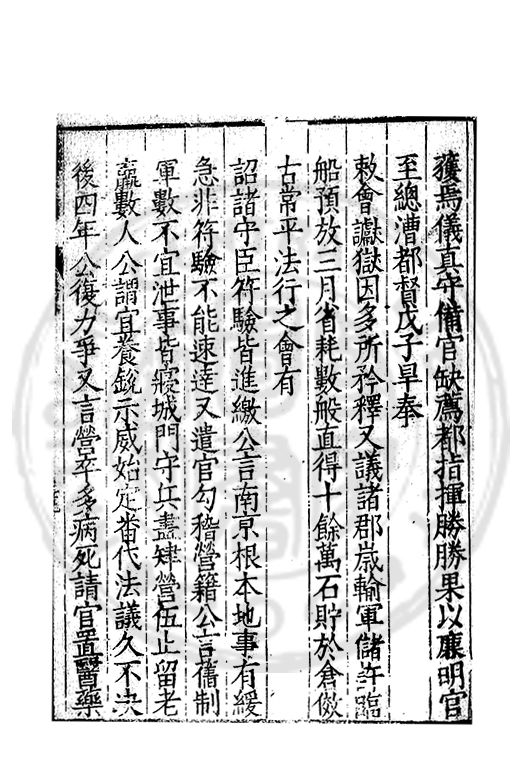 獲焉儀真守備官缺薦都指揮勝勝果以廉明官
至總漕都督戊子旱奉
敕會讞獄因多所矜釋又議諸郡嵗輸軍儲許臨
船預放三月省耗數般直得十餘萬石貯於倉倣
古常平法行之會有
詔諸守臣符驗皆進繳公言南京根本地事有緩
急非符驗不能速達又遣官勾稽營籍公言舊制
軍數不宜泄事皆寢城門守兵盡隷營伍止留老
羸數人公謂宜養銳示威始定畨代法議久不决
後四年公復力爭又言營卒多病死請官置醫藥